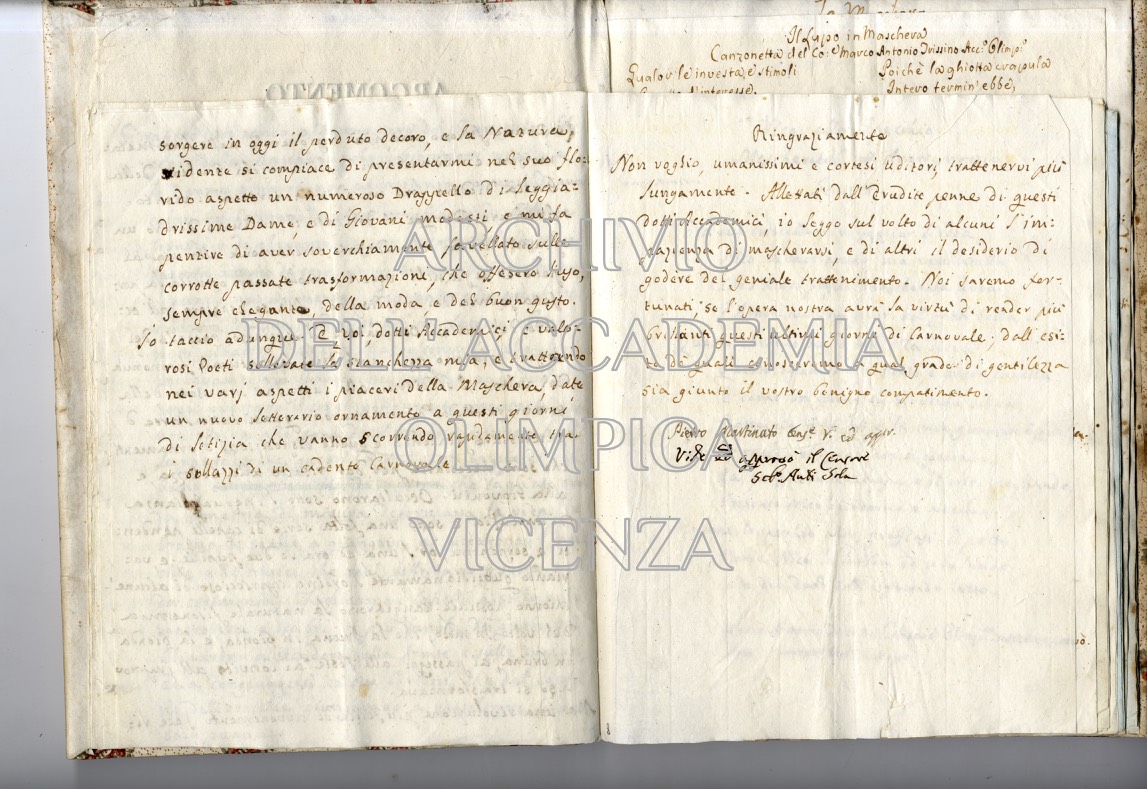 ARGOMENTO
sorgere in oggi il perduto decoro, e la Natura,
ridente si compiace di presentarmi nel suo flo=
rido aspetto un numeroso Drappello di leggia=
drissime Dame, e di Giovani modesti e mi fa
pentire di aver soverchiamente favellato sulle
corrotte passate trasformazioni, che offesero l'uso,
sempre elegante, della moda e del buon gusto.
Io taccio adunque. E Voi, dotti Accademici, e valo=
rosi Poeti sollevate la stanchezza mia, e trattando
nei varj aspetti i piaceri della Maschera, date
un nuovo letterario ornamento a questi giorni
di letizia che vanno scorrendo rapidamente tra
i sollazzi di un cadente Carnovale
Il Lupo in Maschera
Canzonetta del Co: Marco Antonio Trissino Acc.o Olimp.o
Qualor le investa, e stimoli
Poichè la ghiotta crapula
Intero termin' ebbe,
Ringraziamento
Non voglio, umanissimi e cortesi Uditori trattenervi più
lungamente. Allettati dall'erudite penne di questi
dotti Accademici, io leggo sul volto di alcuni l'im=
pazienza di mascherarsi, e di altri il desiderio di
godere del geniale trattenimento. Noi saremo for=
tunati, se l'opera nostra avrà la virtù di render più
brillanti questi ultimi giorni di Carnovale, dall'esi=
to di quali conosceremo a qual grado di gentilezza
sia giunto il vostro benigno compatimento.
Pietro Cens.e V. ed appr.
Vide ed approvò il Censore
Seb.o Anti Sola
8
ARCHIVIO
DELL'ACCADEMIA
OLIMPICA
VICENZA